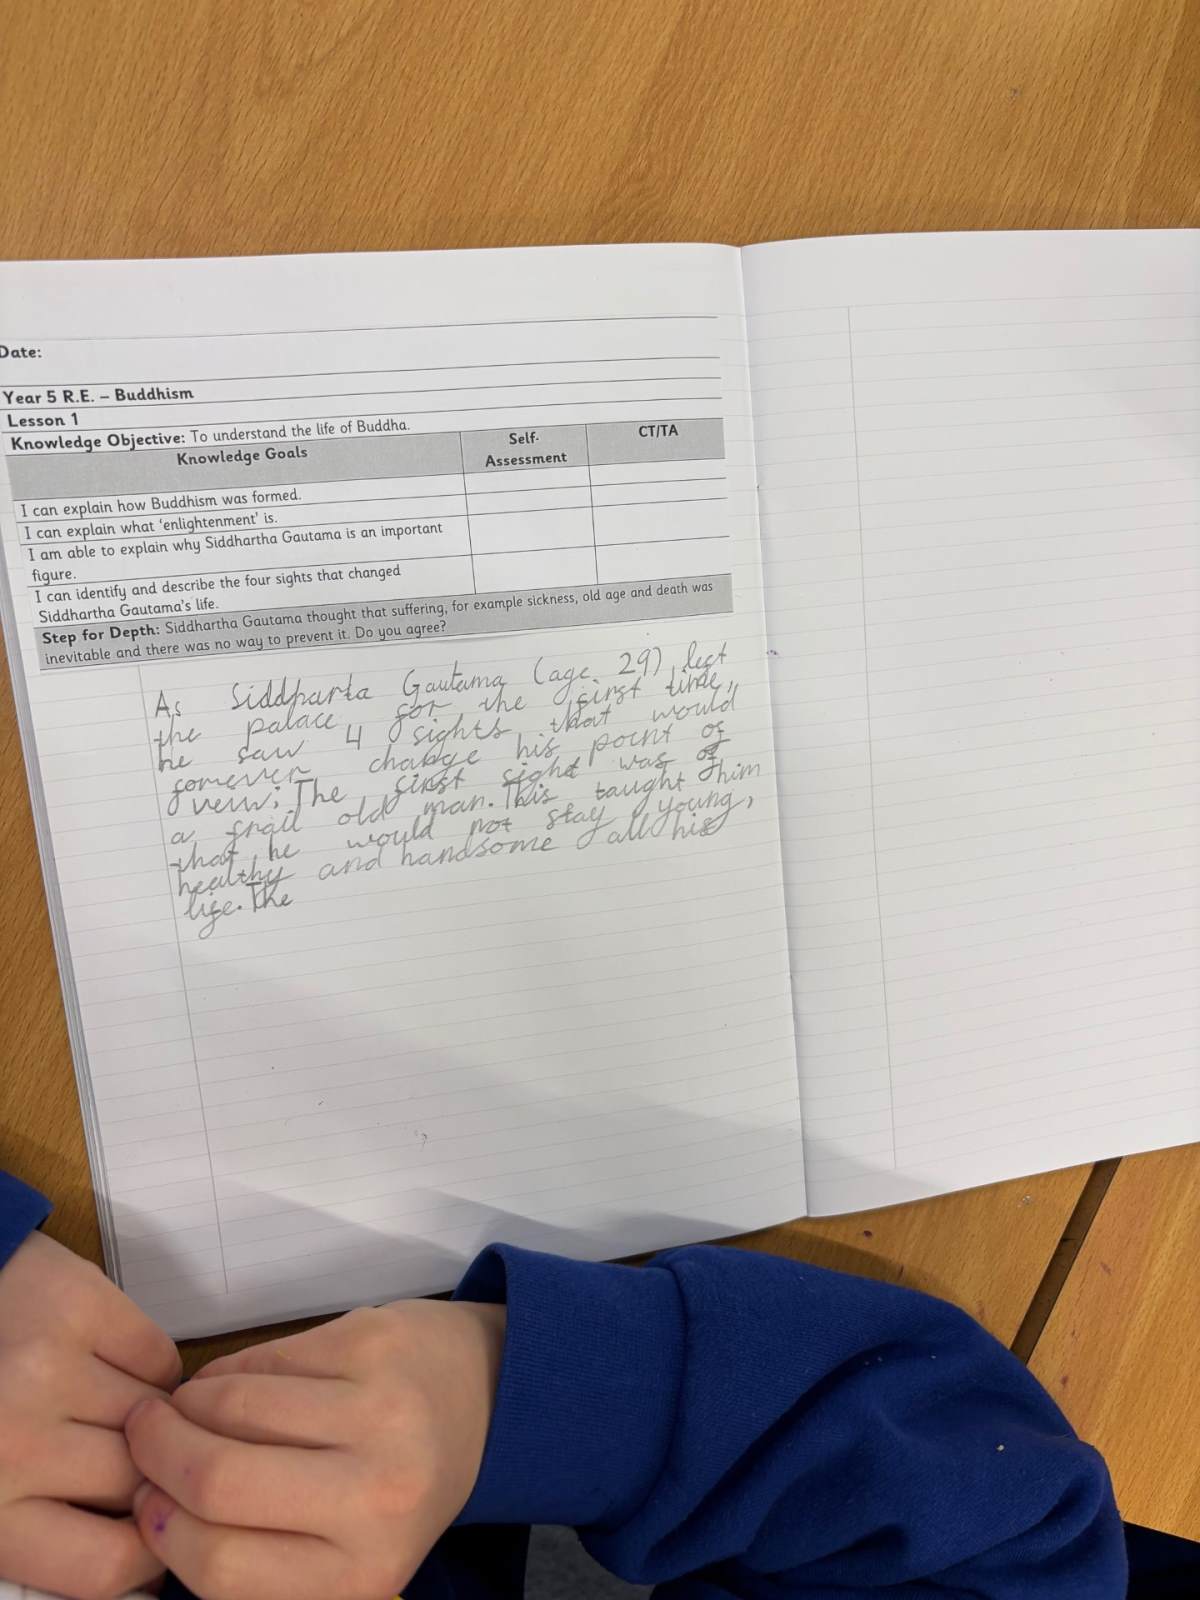 Date:
Year 5 R.E. – Buddhism
Lesson 1
Knowledge Objective: To understand the life of Buddha.
Knowledge Goals
Self-
Assessment
CT/TA
I can explain how Buddhism was formed.
I can explain what 'enlightenment' is.
I am able to explain why Siddhartha Gautama is an important
figure.
I can identify and describe the four sights that changed
Siddhartha Gautama's life.
Step for Depth: Siddhartha Gautama thought that suffering, for example sickness, old age and death was
inevitable and there was no way to prevent it. Do you agree?
As Siddharta Gautama (age 29) left
the palace for the first time,
he saw 4 sights that would
forever change his point of
veiw; The first sight was of
a frail old man. This taught him
that he would not stay young,
healthy and handsome all his
life. The